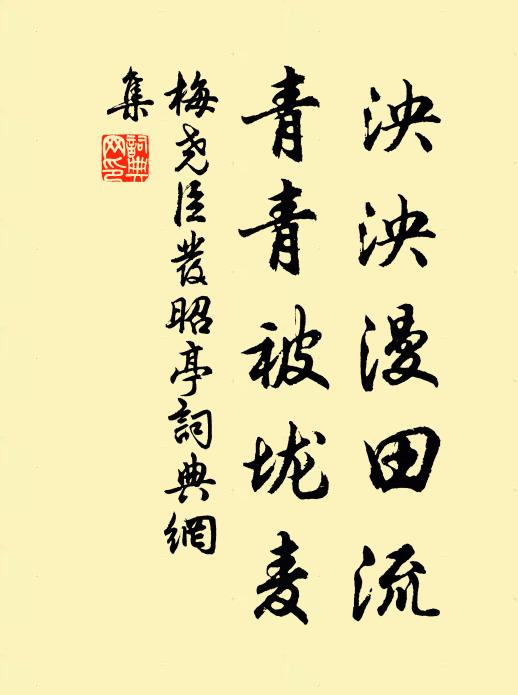 泱泱漫田流
青青被垅麦
梅尧臣發昭亭詞典網
集
詞典网印